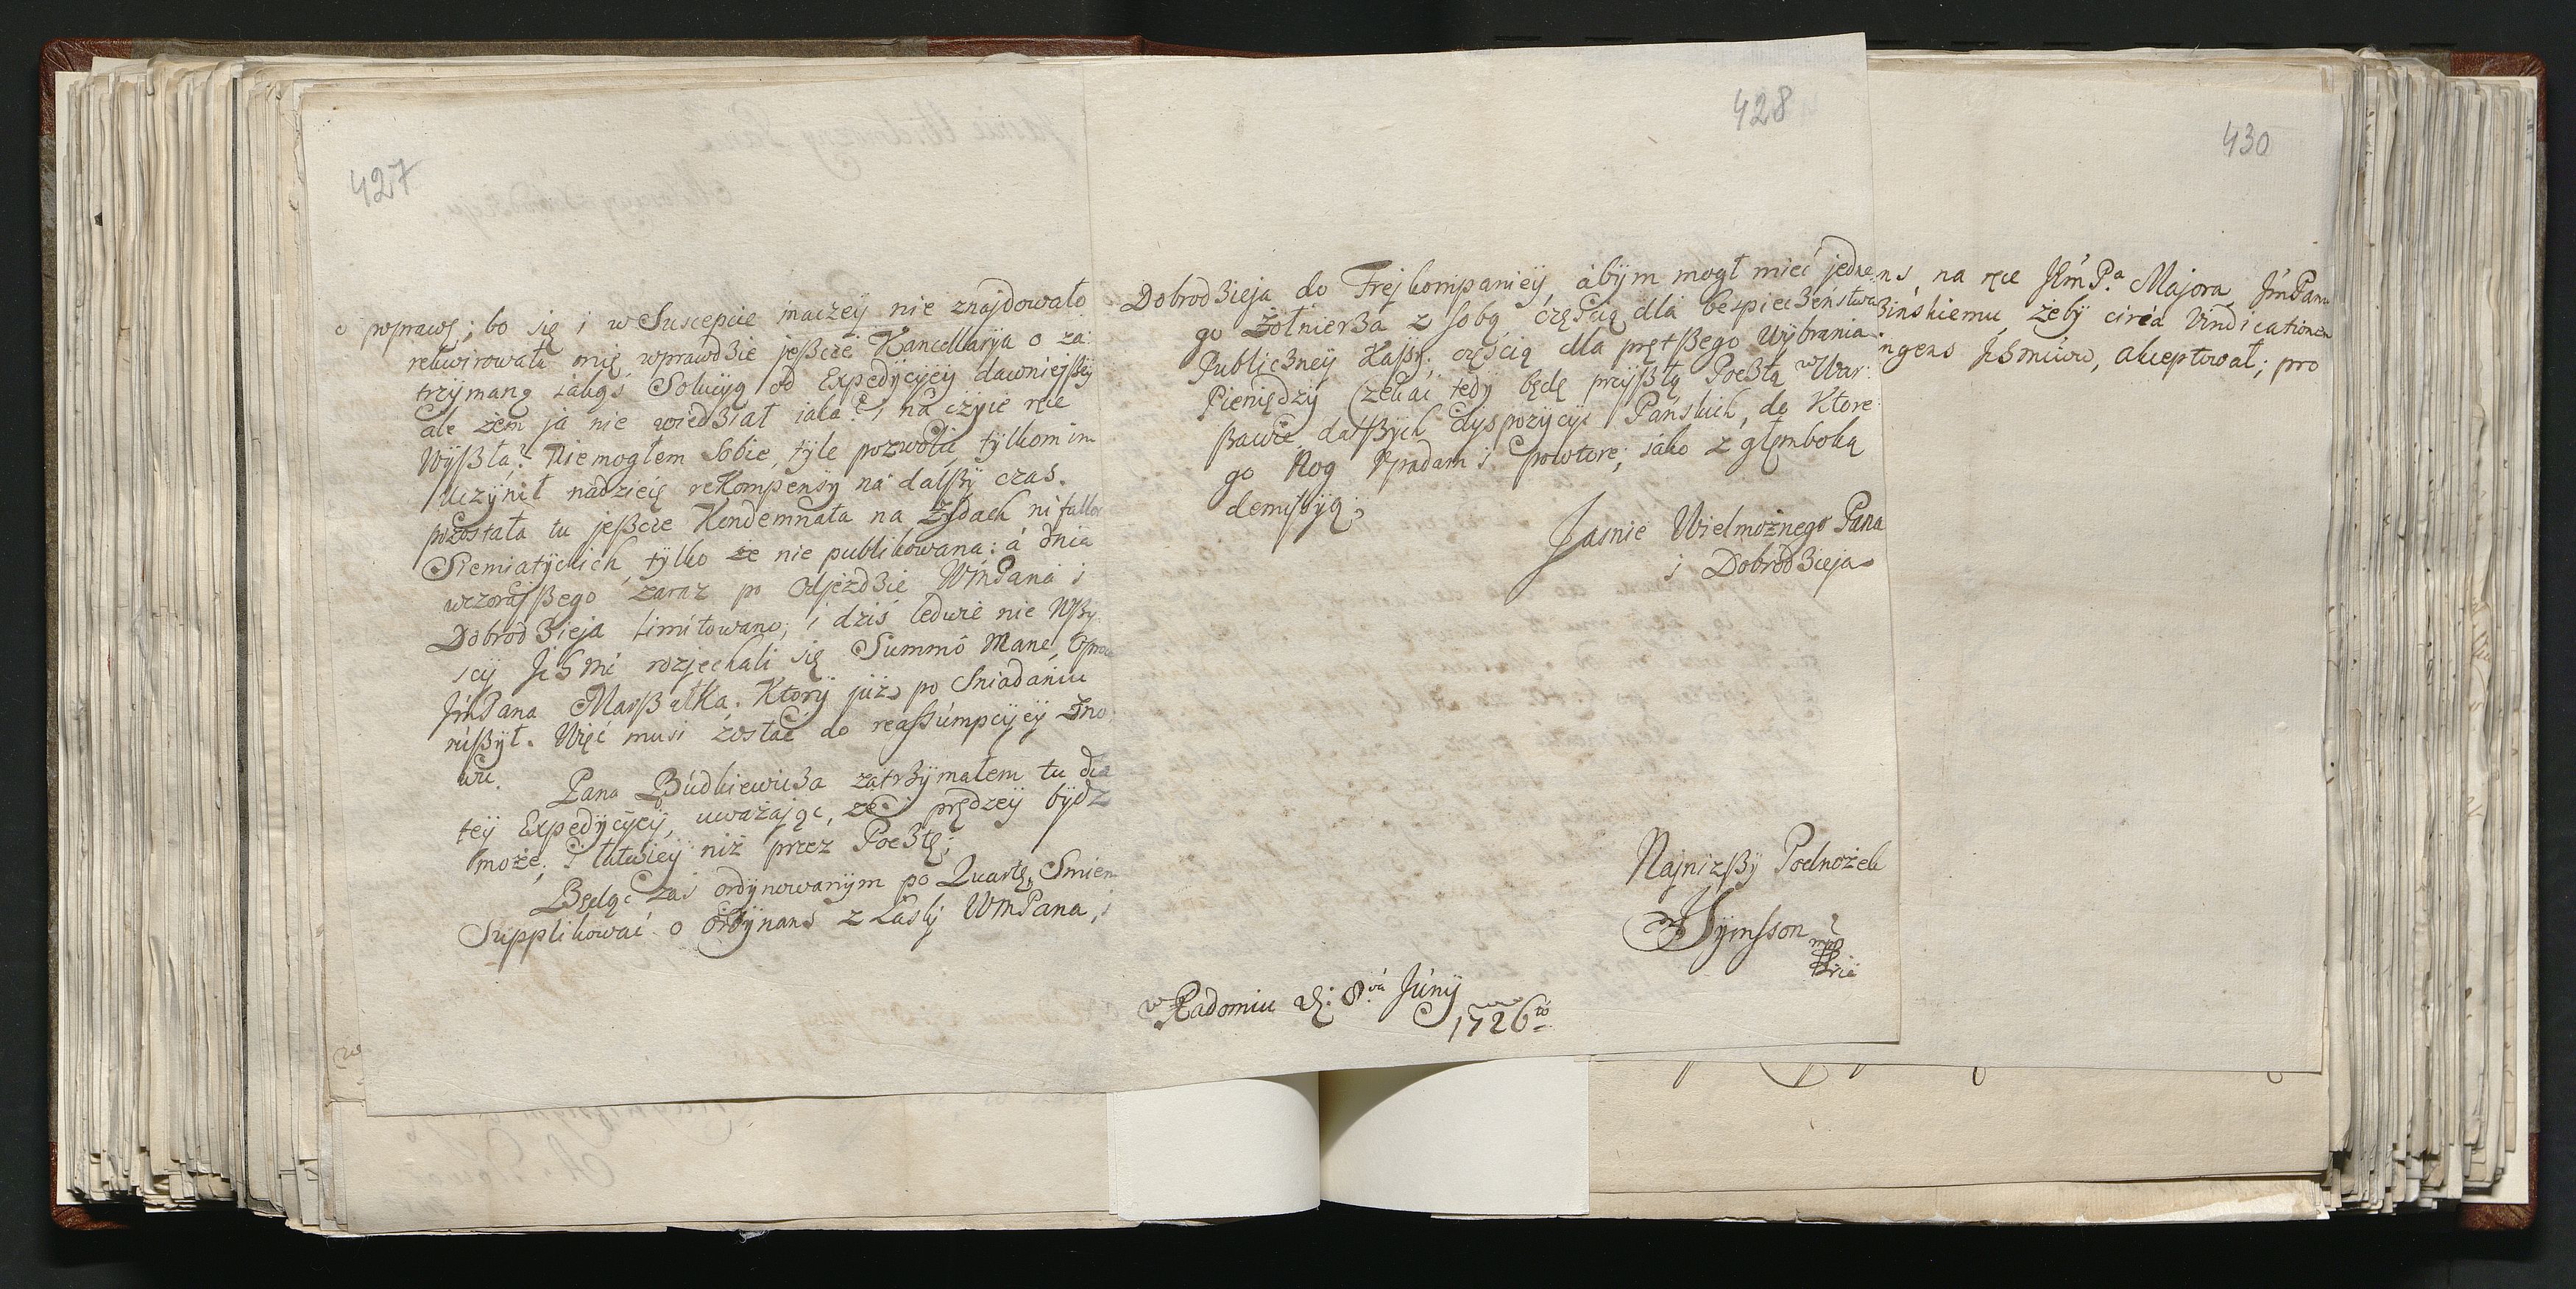 427
o poprawę; bo się i w Suscepcie inaczey nie znajdowało
rekwirowała mię wprawdzie jeßcze Kancellarÿa o za:
trzÿmaną jakąs Solucÿą od Expedÿcÿeÿ dawnieÿßeÿ
ale żem ja nie wiedział jaka? i na czÿie ręce
Wÿßła? Niemogłem Sobie tÿle pozwolić, tÿlkom im
uczÿnił nadzieię rekompensÿ na dalßÿ czas.
pozostała tu jeßcze Kondemnata na Zÿdach ni fallor
Siemiatÿckich, tÿlko że nie publikowana: á dnia
wczoraÿßego zaraz po Odjezdzie WmPana i
Dobrodzieja limitowano; i dziś ledwie nie Wßÿ:
scÿ JchMć rozjechali się Summó Mane, Oprocz
JmPana Marßałka, Ktorÿ już po Sniadaniu
rußÿł. Więc musi zostać do reassumpcÿeÿ Zno:
wu.
Pana Budkiewicza zatrzÿmałem tu dla
teÿ Expedÿcÿeÿ, uważając, że i prędzeÿ bÿdz
może, i łatwieÿ niż przez Pocztę;
Będąc zas ordÿnowanÿm po Quartę, Smiem
Supplikować o Ordÿnans z Łaskÿ WmPana, i
428
Dobrodzieja do Frejkompanieÿ, ábÿm mogł mieć jedne:
go Zołnierza z sobą częscią dla bezpieczeństwa
Publiczneÿ Kassÿ, częścią dla prętßego Wÿbrania
Pieniędzÿ Czekać tedÿ będę przÿßłą Pocztą w War:
ßawie dalßÿch dÿspozÿcÿi Pańskich, do Ktore:
go Nog Upadam i powtore; jako z głęmboką
demissÿą;
Jasnie Wielmożnego Pana
i Dobrodzieja
Najniżßÿ Podnożek
Sÿmsson
mpp
w Radomiu d: 8va Junÿ
1726to
430
ns, na ręce JKmPa Majora JmPanu
zińskiemu, żebÿ circa Vindicationem
ngens Jchmciów, akceptował; pro